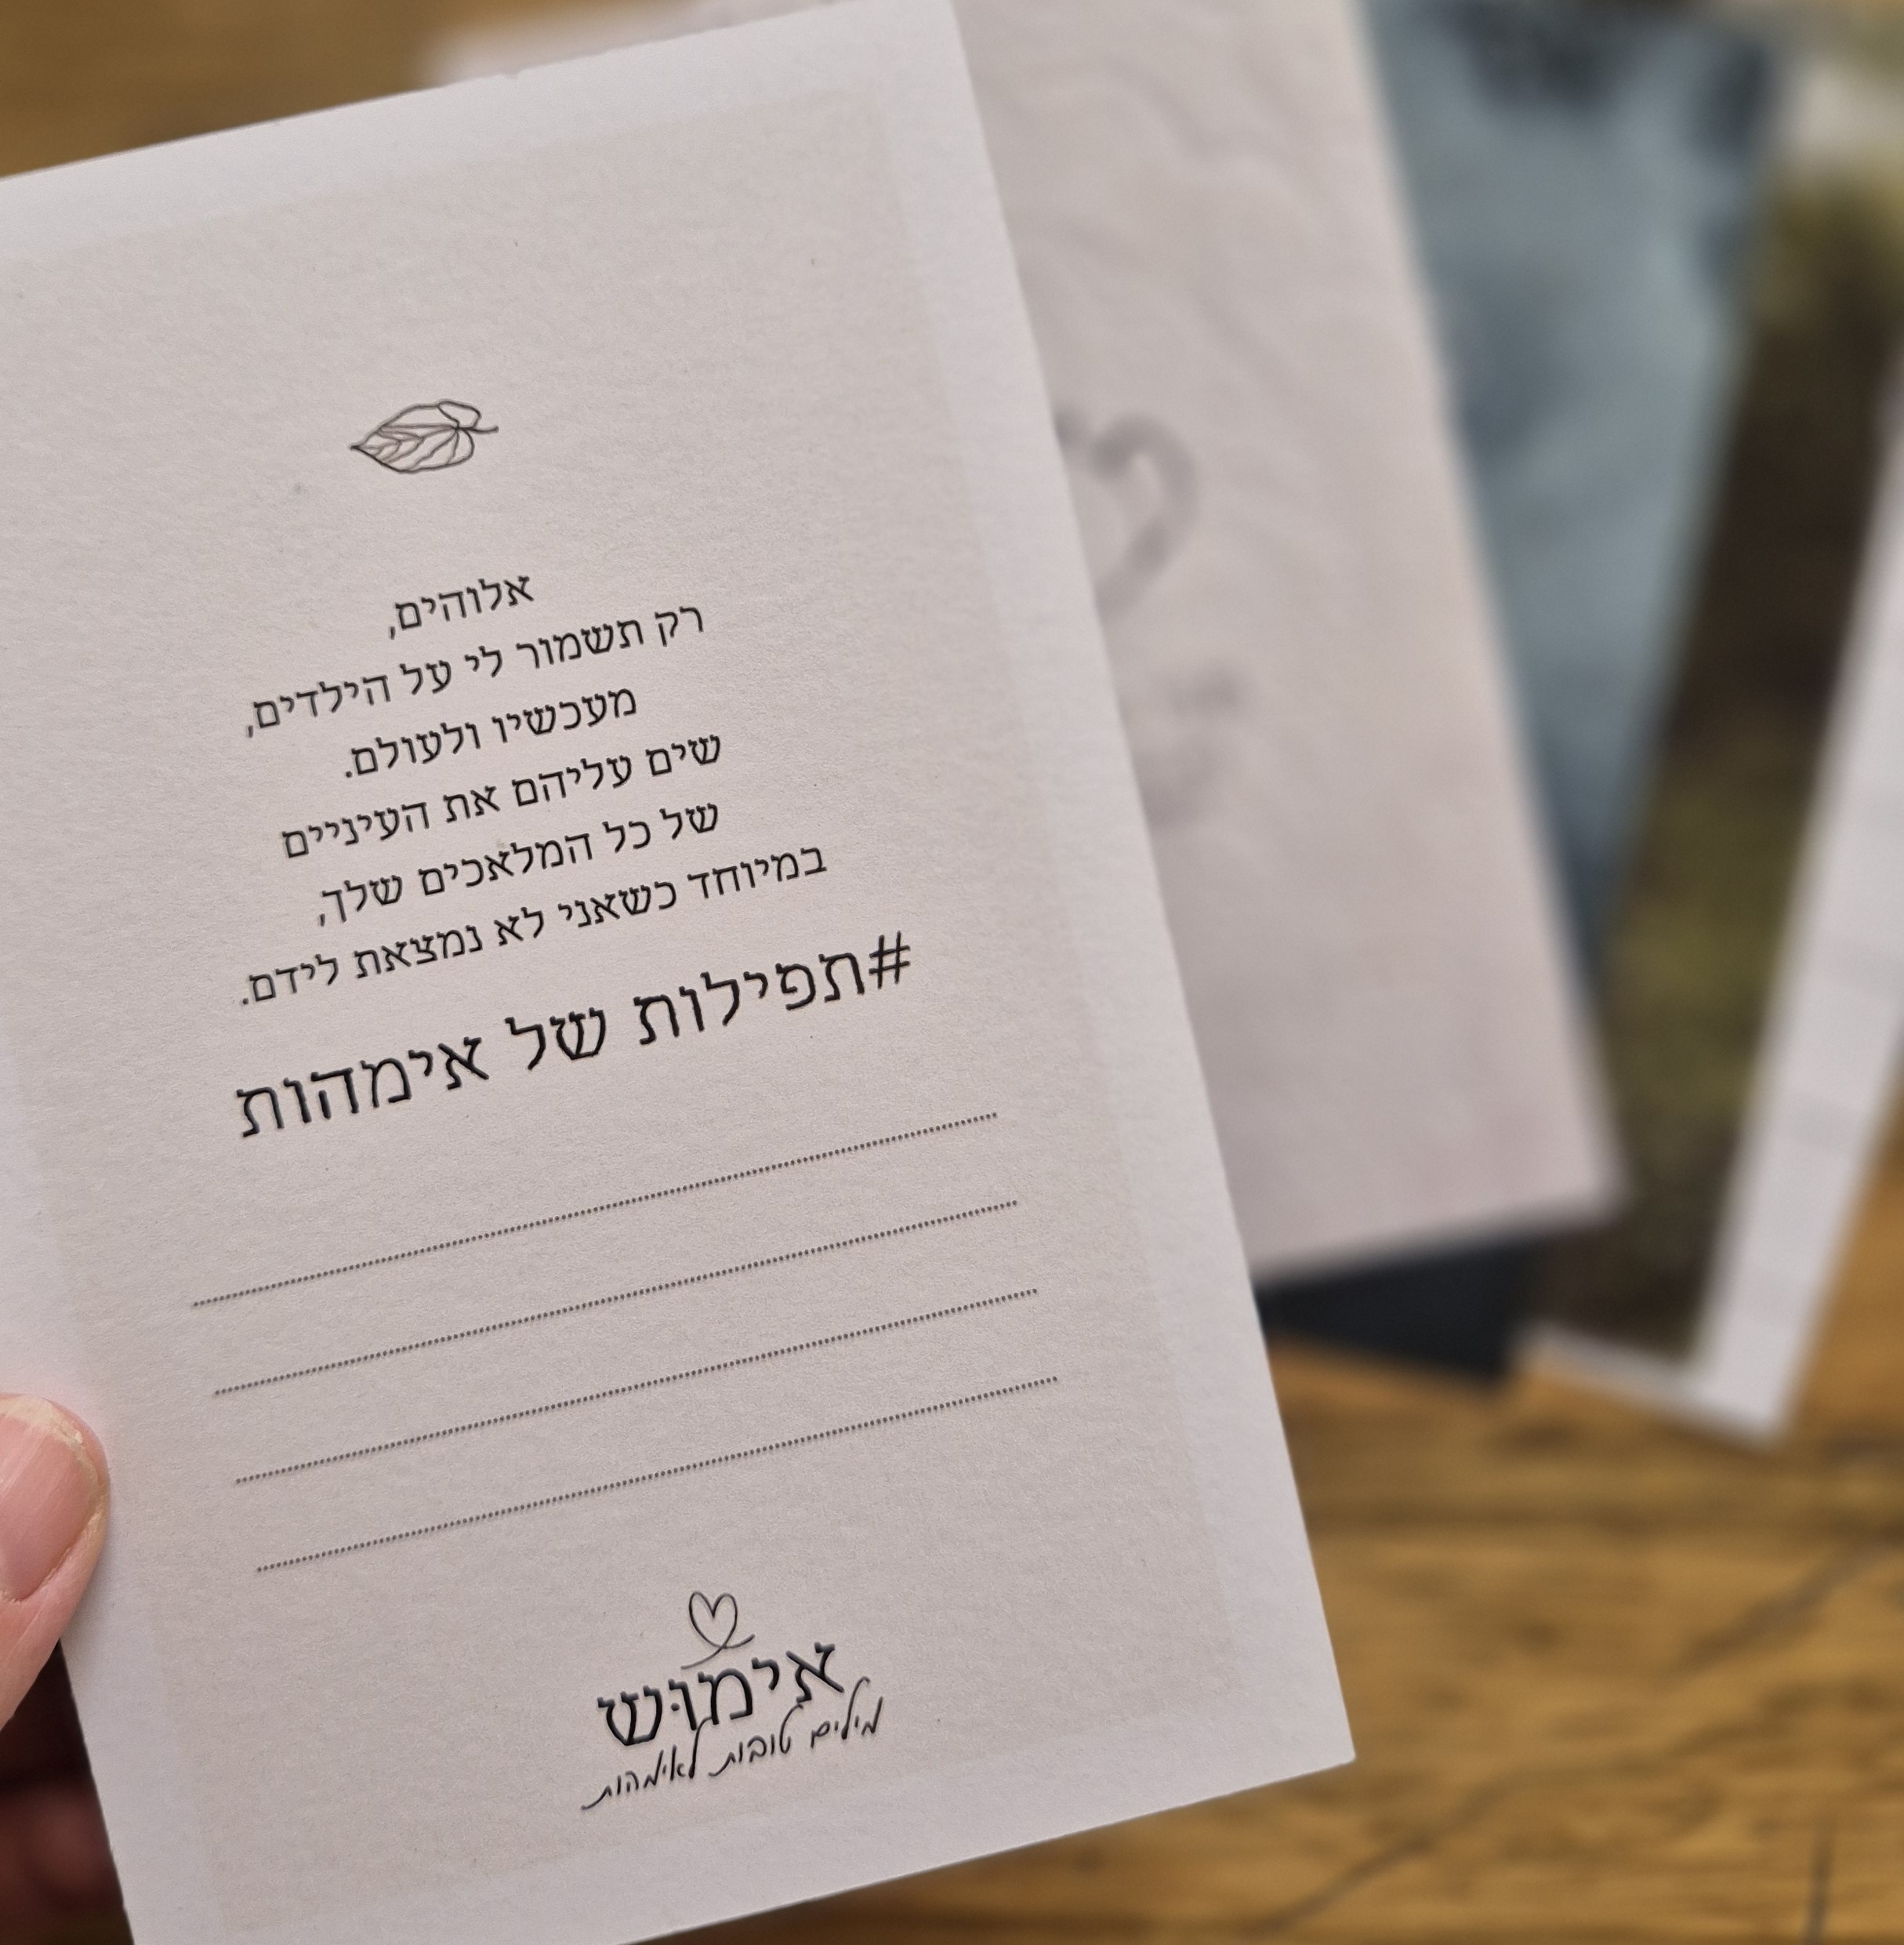 אלוהים,
רק תשמור לי על הילדים,
מעכשיו ולעולם.
שים עליהם את העיניים
של כל המלאכים שלך,
במיוחד כשאני לא נמצאת לידם.
#תפילות של אימהות
אימוּש
מילים טובות לאימהות